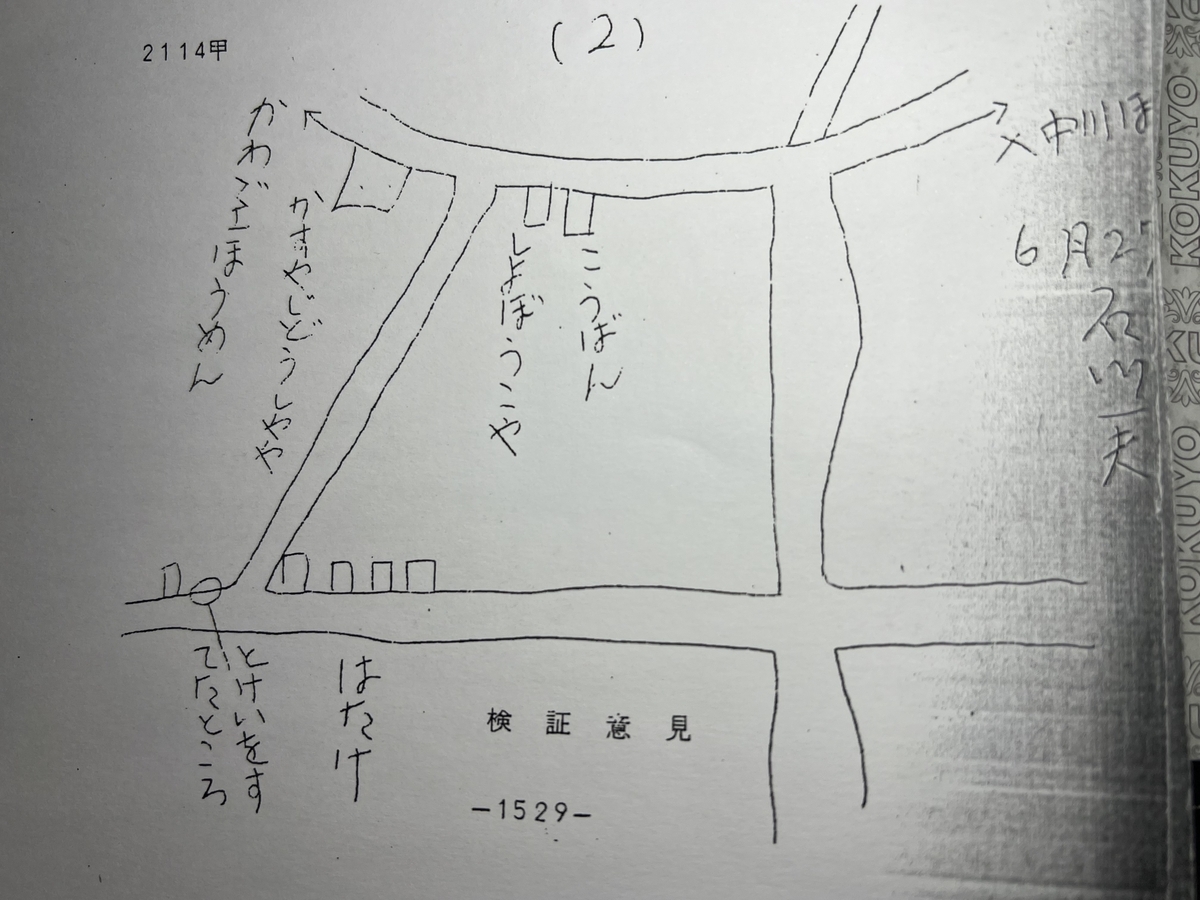 2114甲
(2)
入中川ほ
6月2
石川一夫
こうばん
しよぼうこや
かすやじどうしやや
かわごエほうめん
はたけ
とけいをす
てたところ
検証意見
-1529-
KOKUYO
KOKUYO
KOKUYO